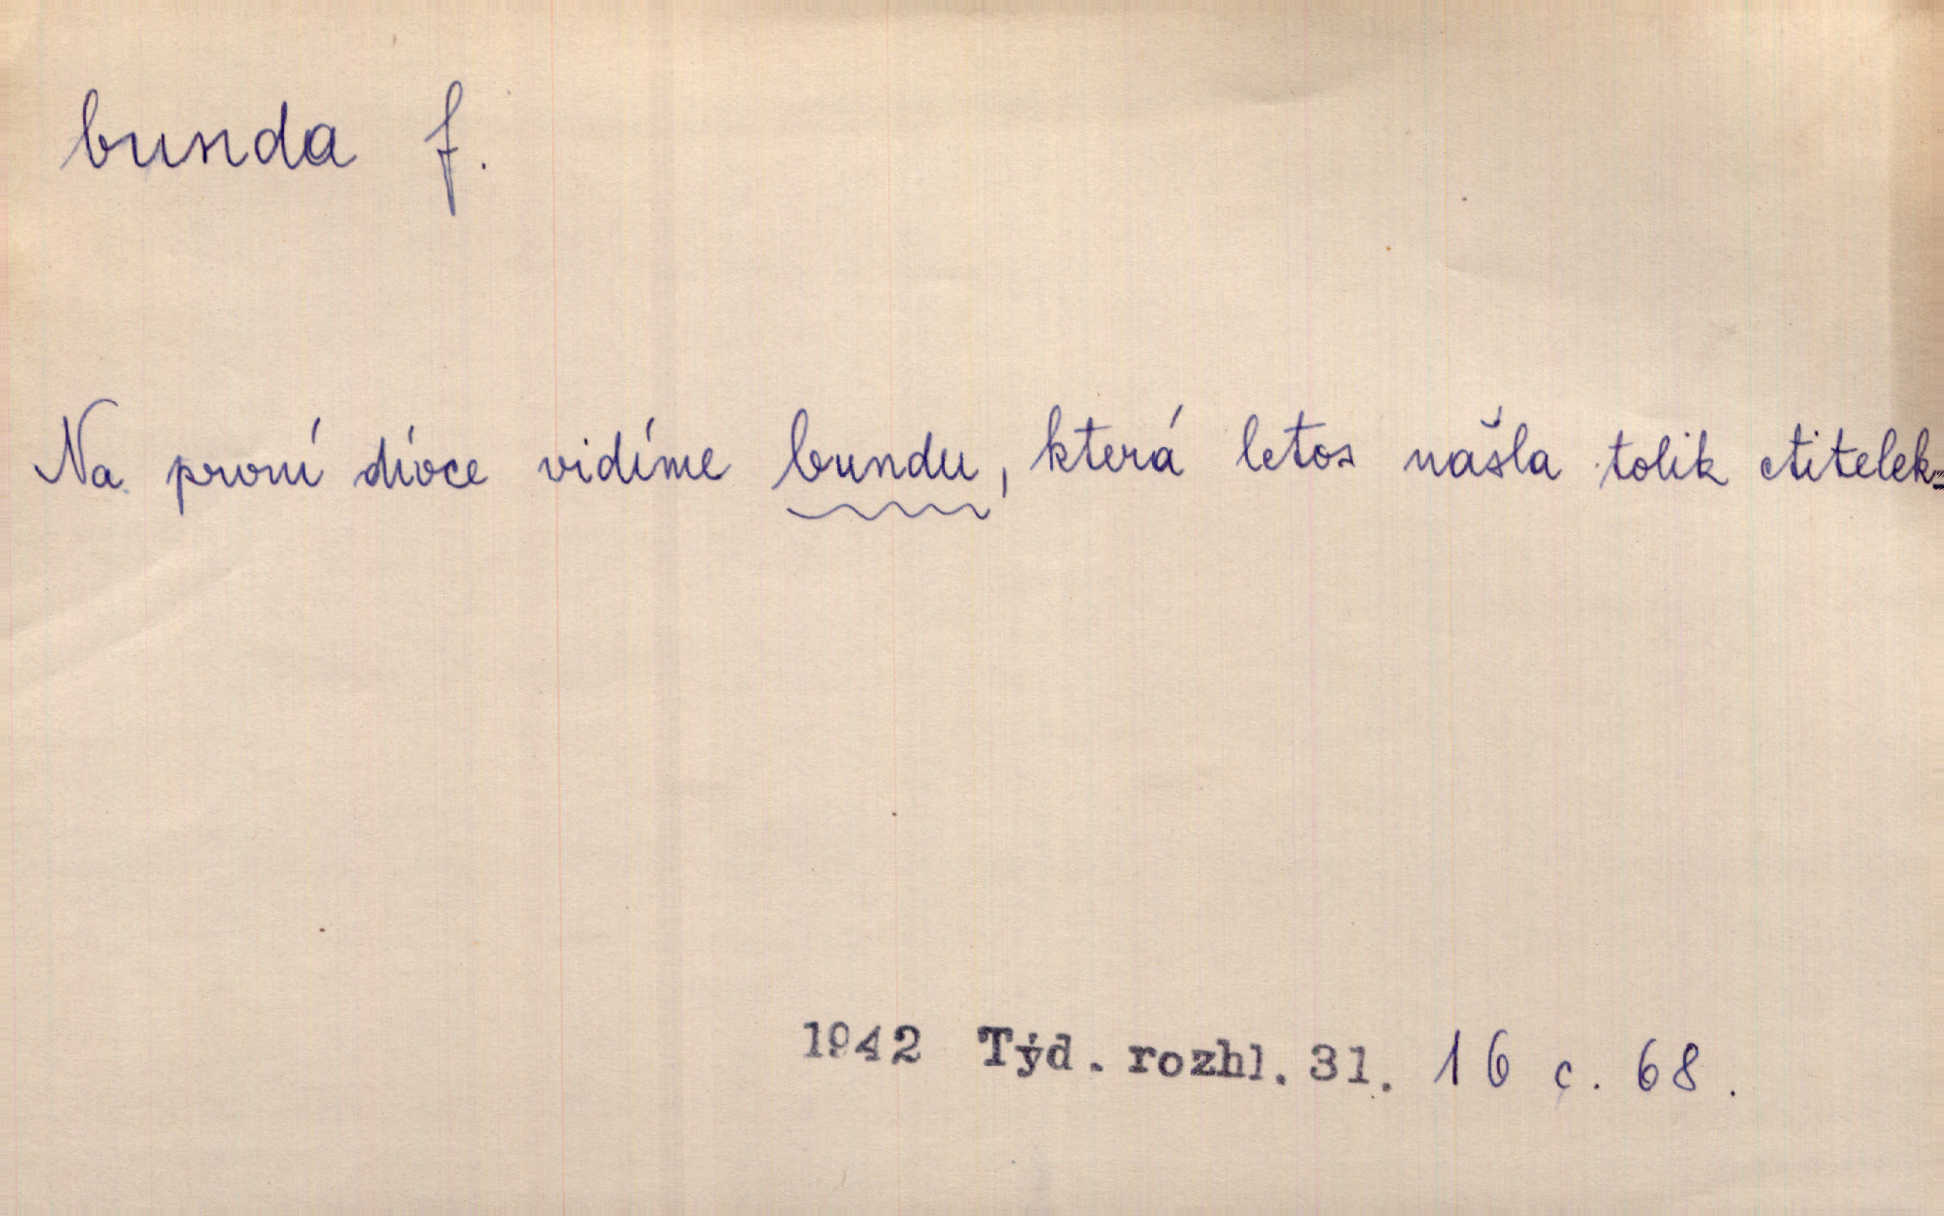 bunda f.
Na první dívce vidíme bundu, která letos našla tolik ctitelek.
1942 Týd. rozhl. 31. 16 c. 68.